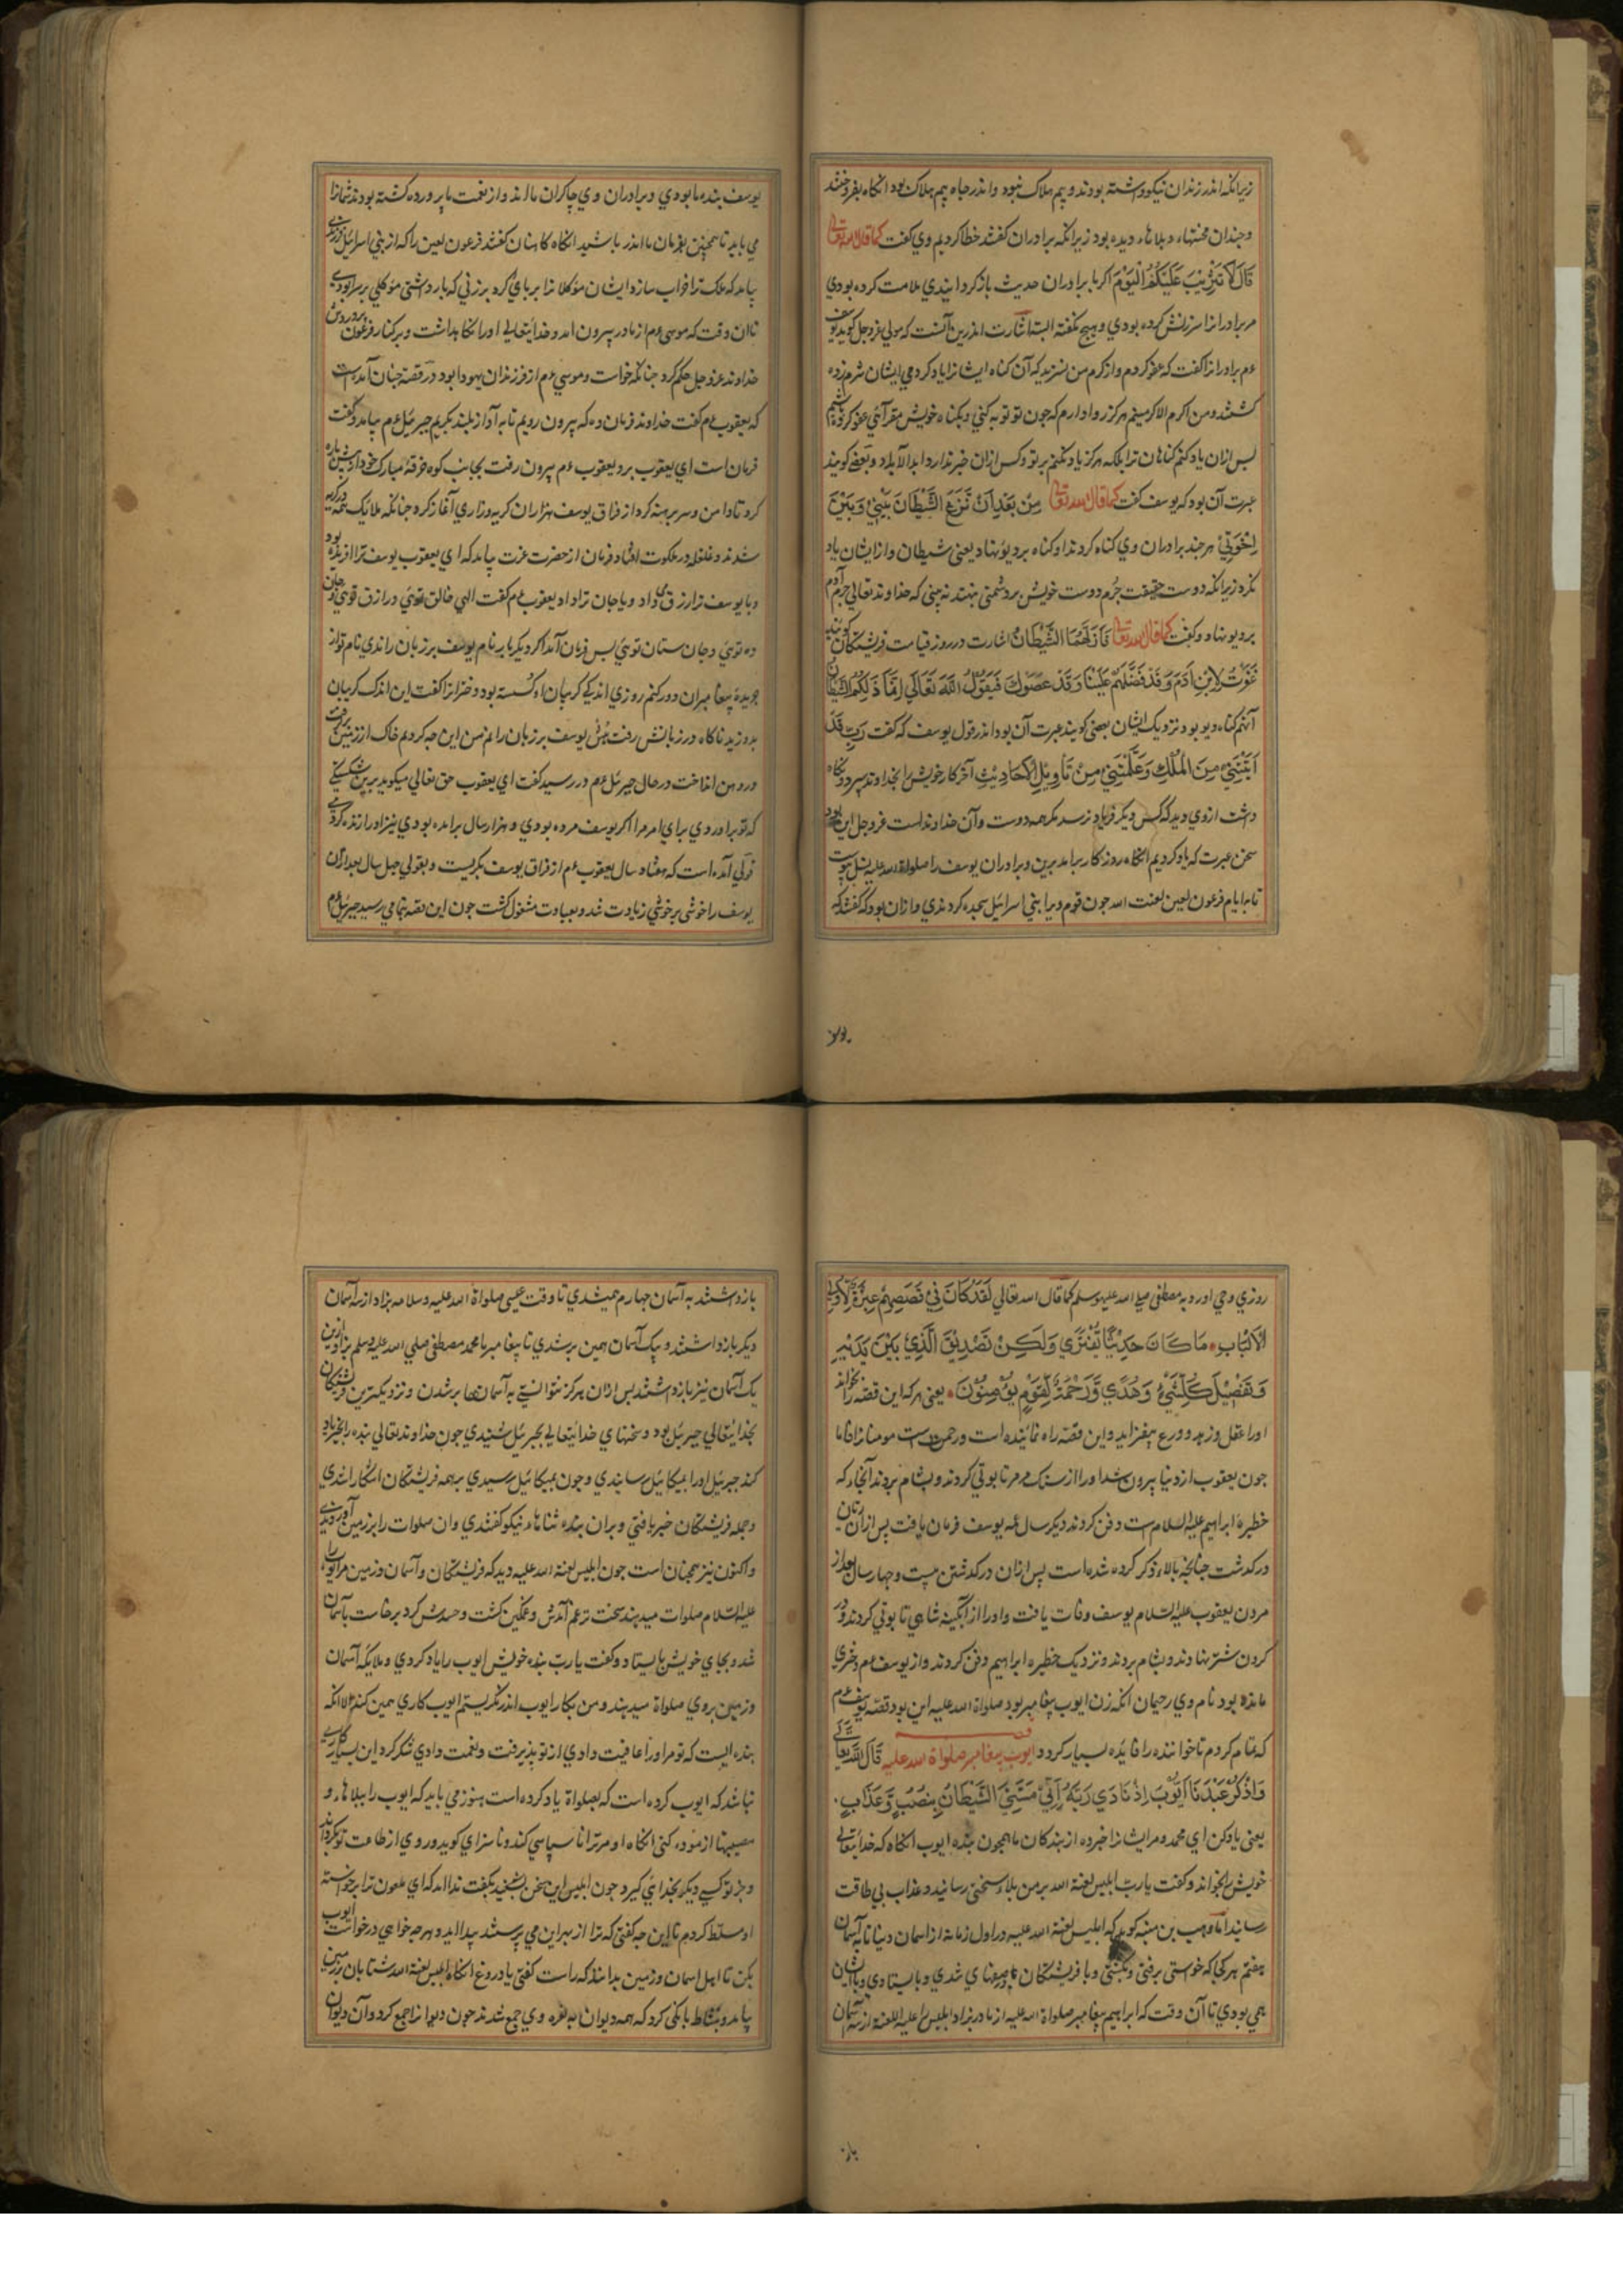 زیرانکه اندر زندان نیکو داشته بودند و بیم هلاک نبود و اندر چاه بیم هلاک بود انکاه بفروختند
و جندان محنتها و بلاها دیده بود زیرانکه برادران کفتند خطا کردیم وی کفت کما قال الله تعالی
قَالَ لَا تَثْرِيبَ عَلَيْكُمُ الْيَوْمَ اکر با برادران حدیث باز کردانیدی ملامت کرده بودی
مر برادرانرا سرزنش کرده بودی و هیچ نکفته البته اشارت اندرین آنست که مولی عزوجل کوید یوسف
عم برادرانرا کفت که عفو کردم و از کرم من نسزید که آن کناه ایشانرا یاد کردمی ایشان شرم زده
کشتند و من اکرم الاکرمینم هرکز روا دارم که جون تو توبه کنی و بکناه خویش مقر آئی عفو کردم
پس ازان یاد کنم کناهان ترا بلکه هرکز یاد نکنم بر تو و کس ازان خبر ندارد ابد الآباد و بعضی کویند
عبرت آن بود که یوسف کفت کما قال الله تعالی مِنْ بَعْدِ أَنْ نَزَغَ الشَّيْطَانُ بَيْنِي وَبَيْنَ
إِخْوَتِي هر جند برادران وی کناه کردند او کناه بر دیو نهاد یعنی شیطان و از ایشان یاد
نکرد زیرانکه دوست حقیقت جرم دوست خویش بر دشمن بنهد نه بینی که خداوند تعالی جرم آدم
بر دیو نهاد و کفت کما قال الله تعالی فَأَزَلَّهُمَا الشَّيْطَانُ اشارت در روز قیامت فریشتکان کویند
غَوَتْ لِابْنِ آدَمَ وَقَدْ فَضَّلْتَهُمْ عَلَيْنَا وَقَدْ عَصَوْكَ فَيَقُولُ اللَّهُ تَعَالَى إِنَّمَا ذَلِكُمُ الشَّيْطَانُ
آنهم کناه دیو بود نزدیک ایشان بعضی کویند عبرت آن بود اندر قول یوسف که کفت رَبِّ قَدْ
آتَيْتَنِي مِنَ الْمُلْكِ وَعَلَّمْتَنِي مِنْ تَأْوِيلِ الْأَحَادِيثِ آخر کار خویش را بخداوند سپرد و نکاه
داشت ازوی و دید که کس دیکر فریاد نرسد مکر همه دوست و آن خداوند است عزوجل این بود
سخن عبرت که یاد کردیم انکاه روزکار برامد برین و برادران یوسف را صلواة الله علیه نسل پیوست
تا بر ایام فرعون لعین لعنت الله جون قوم ویرا بنی اسرائیل سجده کردندی و ازان بود که کفتند که
یوسف
یوسف بنده ما بودی و برادران وی چاکران ما اند و از نعمت ما پرورده کشته بودند شمارا
می باید تا همچنین بفرمان ما اندر باشید انکاه کاهنان کفتند فرعون لعین را که از بنی اسرائیل فرزندی
بیاید که ملک ترا خراب سازد ایشان مؤکلانرا بر پای کرد بر زنی که بار داشتی مؤکلی بر سر او بودی
تا ان وقت که موسی عم از مادر بیرون امد و خدایتعالی اورا نکاهداشت و بر کنار فرعون پرورش
خداوند عزوجل حکم کرد جنانکه خواست و موسی عم از فرزندان یهودا بود در قصه جنان آمده است
که یعقوب عم کفت خداوندا فرمان ده که بیرون رویم تا به آواز بلند بکریم جبرئیل عم بیامد و کفت
فرمان است ای یعقوب برو یعقوب عم بیرون رفت بجانب کوه خرقهٔ مبارک خود از پیش پاره
کرد تا دامن و سر برهنه کرد از فراق یوسف هزاران کریه و زاری آغاز کرد جنانکه ملائک همه در کریه
شدند و غلغله در ملکوت افتاد فرمان از حضرت عزت بیامد که ای یعقوب یوسف ترا آفریده بود
و یا یوسف ترا رزق می داد و یا جان ترا داد یعقوب عم کفت الهی خالق توئی و رازق توئی و جان
ده توئی و جان ستان توئی پس فرمان آمد اکر دیکر بار نام یوسف بر زبان راندی نام تو از
جریدهٔ پیغامبران دور کنم روزی اندکی کریبان او کسسته بود و خضرا را کفت این اندک کریبان
بدوزید ناکاه در زبانش رفت یوسف بر زبان راندم من این چه کردم خاک از زمین برکرفت
و در دهن انداخت در حال جبرئیل عم در رسید کفت ای یعقوب حق تعالی میکوید برین شکستکی
که تو براوردی برای امر مرا اکر یوسف مرده بودی و هزار سال برامده بودی نیز اورا زنده کردمی
قولی آمده است که هفتاد سال یعقوب عم از فراق یوسف بکریست و بقولی چهل سال بعد ازان
یوسف را خوشی بر خوشی زیادت شد و بعبادت مشغول کشت جون این قصه بتمامی رسید جبرئیل عم
روزی وحی اورد به مصطفی صلی الله علیه وسلم کما قال الله تعالی لَقَدْ كَانَ فِي قَصَصِهِمْ عِبْرَةٌ لِأُولِي
الْأَلْبَابِ مَا كَانَ حَدِيثًا يُفْتَرَى وَلَكِنْ تَصْدِيقَ الَّذِي بَيْنَ يَدَيْهِ
وَتَفْصِيلَ كُلِّ شَيْءٍ وَهُدًى وَرَحْمَةً لِقَوْمٍ يُؤْمِنُونَ یعنی هرکه این قصه را بخواند
اورا عقل و زهد و ورع بیفزاید و این قصه راه نماینده است و رحمت است مومنانرا اما
جون یعقوب از دنیا بیرون شد اورا از سنک مرمر تابوتی کردند و بشام بردند آنجاء که
خطیرهٔ ابراهیم علیه السلام است دفن کردند دیکر سال عمه یوسف فرمان یافت پس ازان زنان
درکذشت جنانچه بالا ذکر کرده شده است پس ازان درکذشتن بیست و چهار سال بعد از
مردن یعقوب علیه السلام یوسف وفات یافت و اورا از آبکینه شاهی تابوتی کردند و در
کردن شتر نهادند و بشام بردند و نزدیک خطیره ابراهیم دفن کردند و از یوسف عم دختری
مانده بود نام وی رحیمان انکه زن ایوب پیغامبر بود صلواة الله علیه این بود قصه یوسف عم
که تمام کردم تا خواننده را فایده بسیار کردد قصه ایوب پیغامبر صلواة الله علیه قَالَ اللَّهُ تَعَالَى
وَاذْكُرْ عَبْدَنَا أَيُّوبَ إِذْ نَادَى رَبَّهُ أَنِّي مَسَّنِيَ الشَّيْطَانُ بِنُصْبٍ وَعَذَابٍ
یعنی یاد کن ای محمد و مر ایشانرا خبر ده از بندکان ما همجون بنده ایوب انکاه که خدایتعالی
خویش را بخواند و کفت یا رب ابلیس لعنة الله بر من بلاء سختی رسانید و عذاب بی طاقت
رسانید اما وهب بن منبه کوید که ابلیس لعنة الله علیه در اول زمانه از اسمان دنیا تا به آسمان
هفتم هر کجا که خواستی برفتی و بکشتی و با فریشتکان شدی و بایستادی و با ایشان
همی بودی تا آن وقت که ابراهیم پیغامبر صلواة الله علیه از مادر بزاد ابلیس را علیه اللعنة از سه آسمان
باز
باز داشتند به آسمان جهارم همیشدی تا وقت عیسی صلواة الله علیه وسلامه بزاد از سه آسمان
دیکر باز داشتند و بیک آسمان همین برشدی تا پیغامبر ما محمد مصطفی صلی الله علیه وسلم بزاد ازین
یک آسمان نیز باز داشتند پس ازان هرکز نتوانستی به آسمانها برشدن و نزدیکترین فریشتکان
بخدایتعالی جبرئیل بود و سخنهای خدایتعالی بجبرئیل شنیدی جون خداوند تعالی بنده را بخیر یاد
کند جبرئیل اورا بمیکائیل رسانیدی و جون بمیکائیل رسیدی بر همه فریشتکان اشکارا شدی
و جمله فریشتکان خبر یافتی و بران بنده ثناهاء نیکو کفتندی و ان صلوات را بر زمین آوردندی
و اکنون نیز همچنان است جون ابلیس لعنة الله علیه دید که فریشتکان و آسمان و زمین مر ایوب را
علیه السلام صلوات میدهند سخت ترغم آمدش و غمکین کشت و حسدش کرد برخاست بآسمان
شد و بجای خویش بایستاد و کفت یا رب بنده خویش ایوب را یاد کردی و ملائکه آسمان
و زمین بروی صلواة میدهند و من بکار ایوب اندر نکریستم ایوب کاری همین کند الا انکه
بنده ایست که تو مر اورا عافیت دادی از تو پذیرفت و نعمت دادی شکر کرد این بسیار کاری
نباشد که ایوب کرده است که بصلواة یاد کرده است هنوز می باید که ایوب را ببلاها و
مصیبتها ازموده کنی انکاه او مر ترا ناسپاسی کند و ناسزای کوید و روی از طاعت تو بکرداند
و جز تو کسی دیکر بخدایی کیرد جون ابلیس این سخن بشنید بکفت ندا امد که ای ملعون ترا بر خواسته
او مسلط کردم تا این چه کفتی که ترا از بهر این می پرستد پیدا اید و هرچه خواهی در خواست ایوب
بکن تا اهل اسمان و زمین بدانند که راست کفتی یا دروغ انکاه ابلیس لعنة الله شتابان بر زمین
بیامد و بنشاط بانکی کرد که همه دیوان به نعره وی جمع شدند جون دیوانرا جمع کرد و آن دیوان